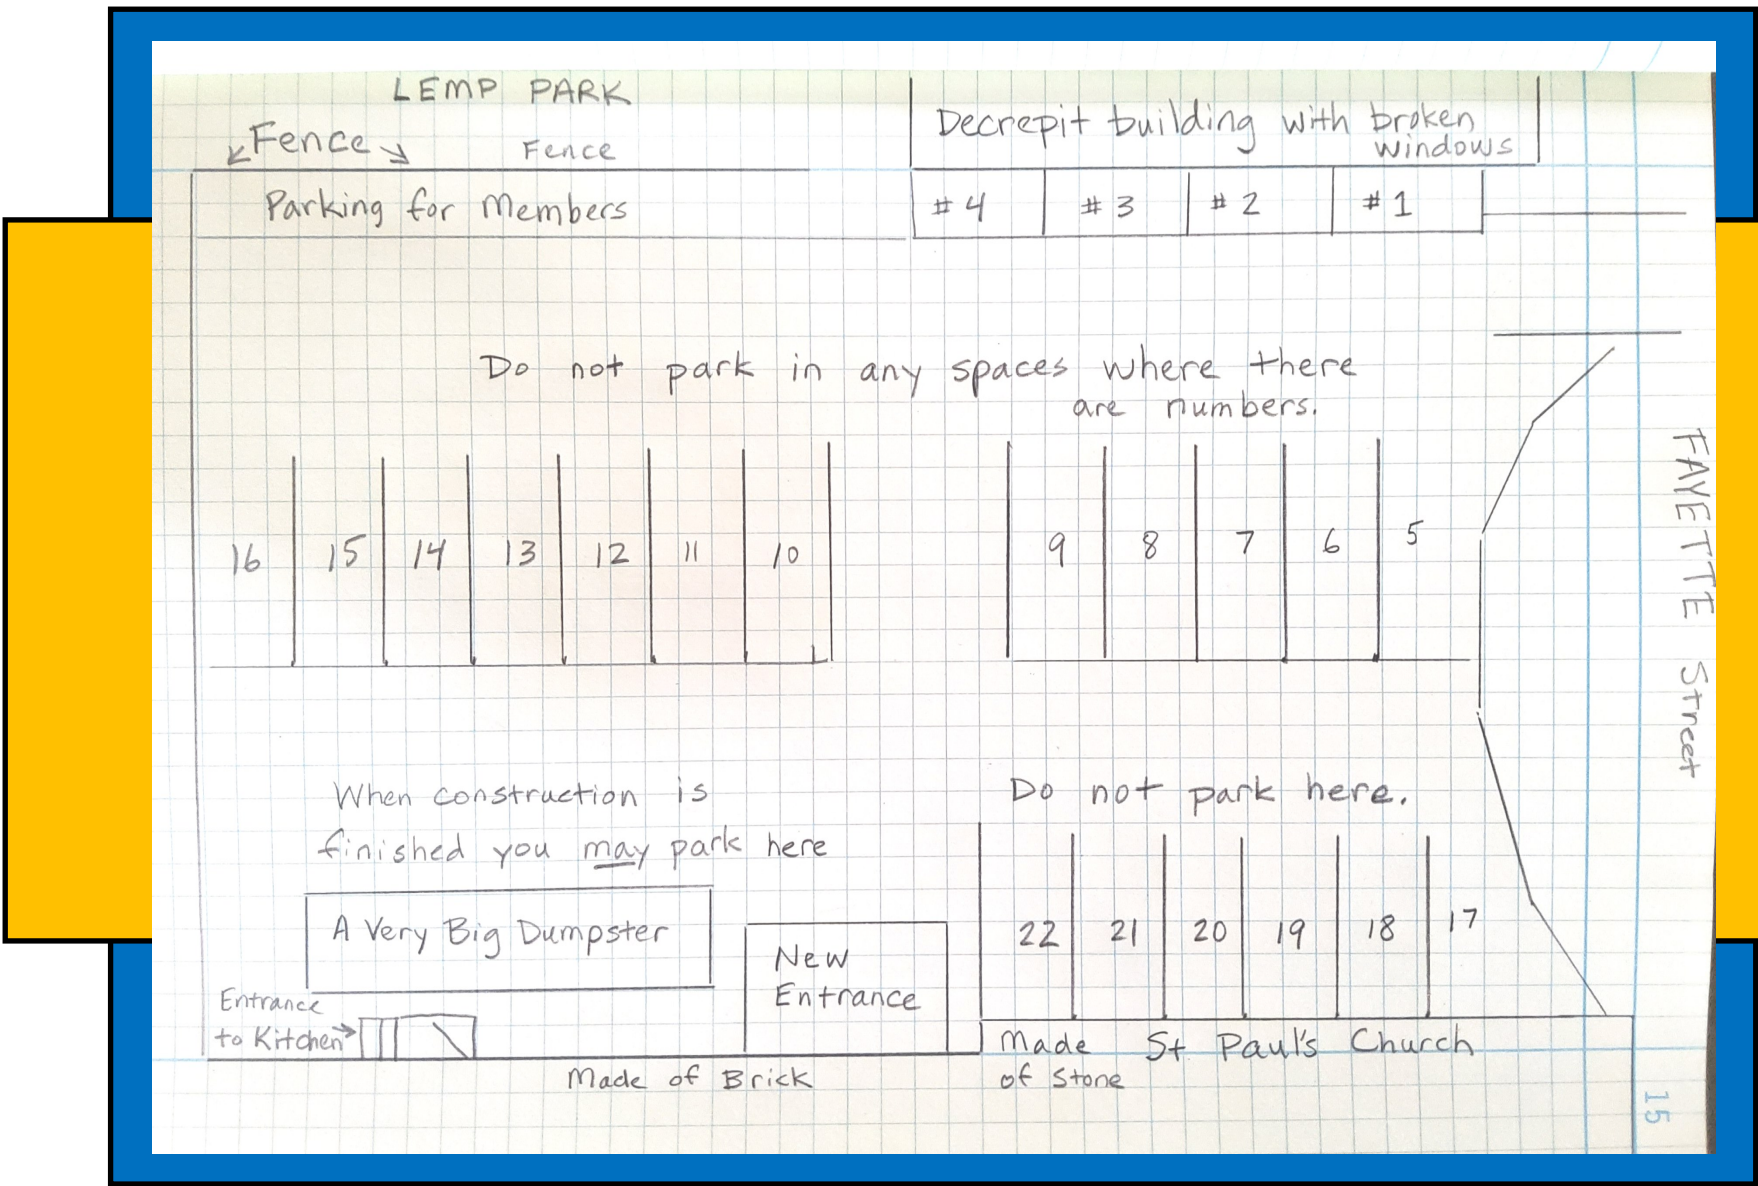 LEMP PARK
Fence
Fence
Decrepit building with broken
windows
Parking for Members
#4
#3
#2
#1
Do not park in any spaces where there
are numbers.
16
15
14
13
12
11
10
9
8
7
6
5
FAYETTE Street
When construction is
finished you may park here
Do not park here.
A Very Big Dumpster
New
Entrance
22
21
20
19
18
17
Entrance
to Kitchen
Made
of Stone
St Paul's Church
Made of Brick
15